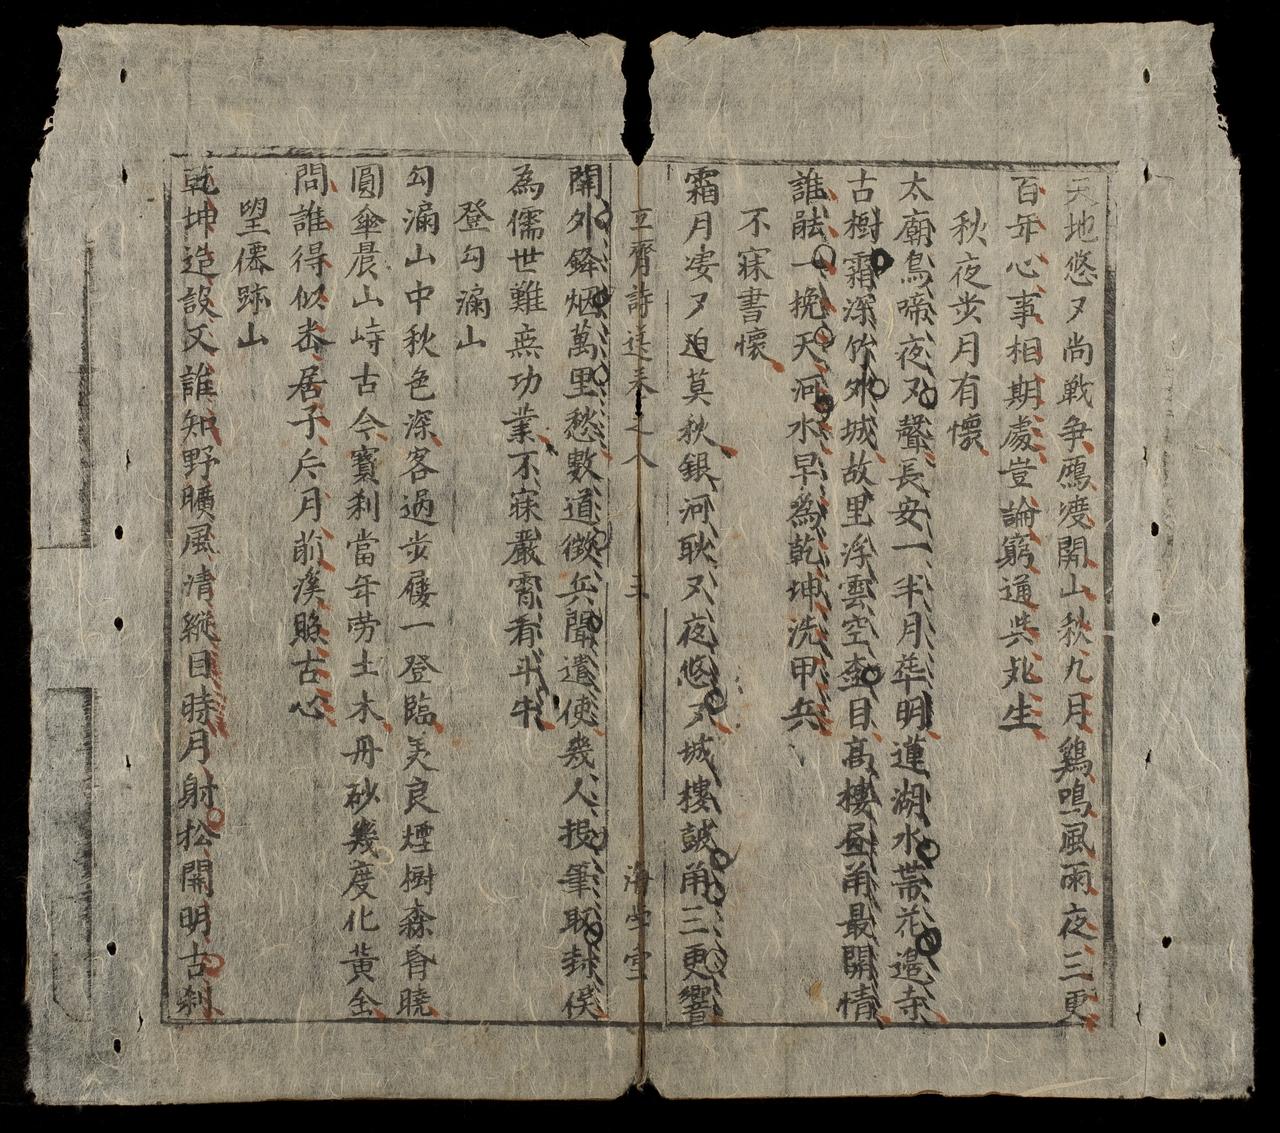 天地悠〻尚戰争鴈度関山秋九月鷄鳴風雨夜三更
百年心事相期處豈論窮通共死生
秋夜步月有懷
太廟鳥啼夜〻聲長安一半月華明蓮湖水帶花邉寺
古樹霜深竹外城故里浮雲空查目高樓昼角最開情
誰能一挽天河水早爲乾坤洗甲兵
不寐書懷
霜月凄〻迫莫秋銀河耿〻夜悠〻城樓鼓角三更響
立齋詩選卷之八 三 海堂
関外鋒烟萬里愁數道徴兵聞遣使幾人投筆取封侯
為儒世難無功業不寐嚴霄看斗牛
登勾漏山
勾漏山中秋色深客過步屧一登臨美良煙樹森脊曉
圓傘晨山峙古今寳刹當年劳土木丹砂幾度化黄金
問誰得似岩居子斥月前溪照古心
望僊跡山
乾坤造設又誰知野曠風清縱目時月射松開明古刹